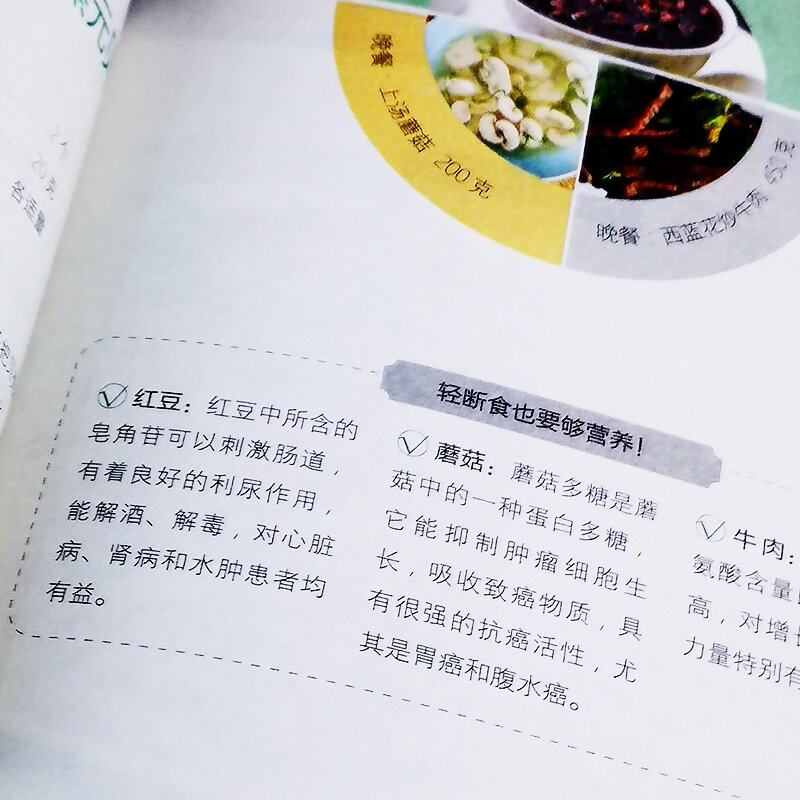 晚餐 上汤蘑菇 200 克
晚餐 西蓝花炒牛肉 450 克
2个
20 克
各适量
轻断食也要够营养!
红豆：红豆中所含的
皂角苷可以刺激肠道，
有着良好的利尿作用，
能解酒、解毒，对心脏
病、肾病和水肿患者均
有益。
蘑菇：蘑菇多糖是蘑
菇中的一种蛋白多糖，
它能抑制肿瘤细胞生
长，吸收致癌物质，具
有很强的抗癌活性，尤
其是胃癌和腹水癌。
牛肉：
氨酸含量
高，对增长
力量特别有